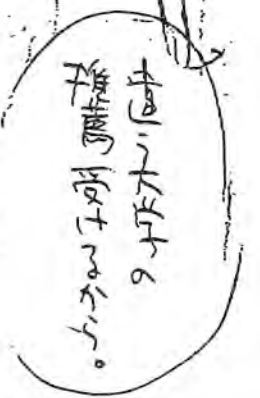 違う大学の
推薦受けるから。